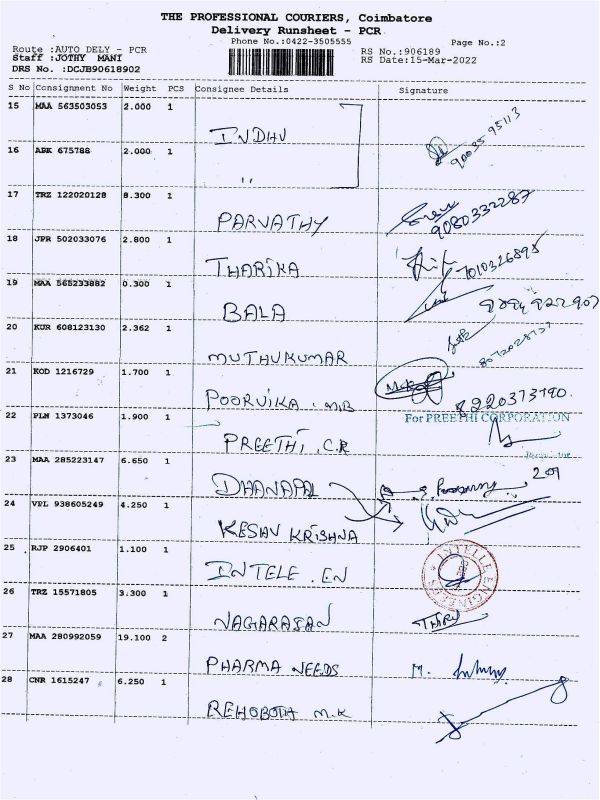 THE PROFESSIONAL COURIERS, Coimbatore
Delivery Runsheet - PCR
Phone No.:0422-3505555 Page No.:2
Route :AUTO DELY - PCR RS No.:906189
Staff :JOTHY MANI RS Date:15-Mar-2022
DRS No. :DCJB90618902
S No Consignment No Weight PCS Consignee Details Signature
15 MAA 563503053 2.000 1
INDHU 90035 95113
16 ABK 675788 2.000 1
"
17 TRZ 122020128 8.300 1
PARVATHY 9080332287
18 JPR 502033076 2.800 1
THARIKA 7010326895
19 MAA 565233882 0.300 1
BALA
20 KUR 608123130 2.362 1
MUTHUKUMAR
21 KOD 1216729 1.700 1
POORVIKA . MB 8220373790.
22 PLN 1373046 1.900 1 For PREETHI CORPORATION
PREETHI . C.R
23 MAA 285223147 6.650 1
DHANAPAL
24 VPL 938605249 4.250 1
KESAV KRISHNA
25 RJP 2906401 1.100 1
INTELE . EN
26 TRZ 15571805 3.300 1
NAGARAJAN
27 MAA 280992059 19.100 2
PHARMA NEEDS M.
28 CNR 1615247 6.250 1
REHOBOTH M.K